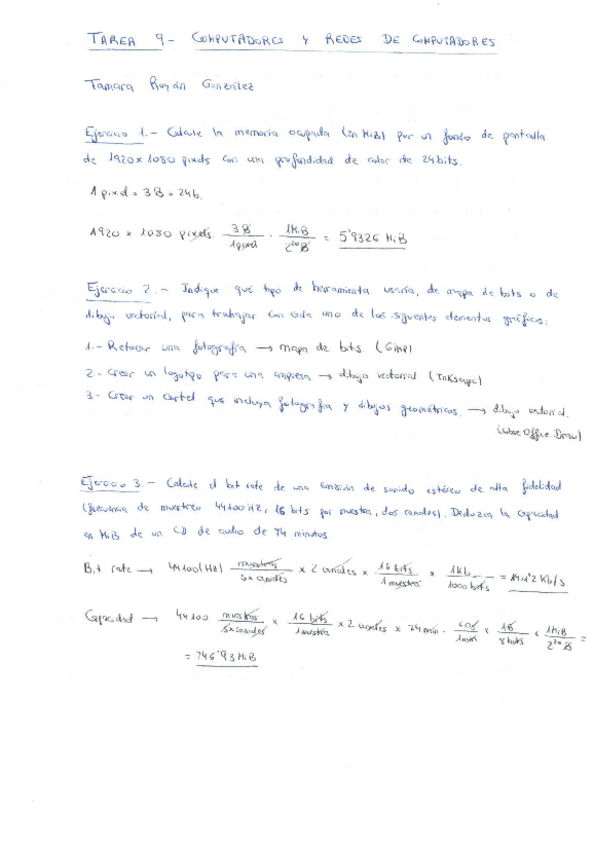 TAREA 9 - COMPUTADORES Y REDES DE COMPUTADORES
Tamara Royán González
Ejercicio 1.- Calcule la memoria ocupada (en MiB) por un fondo de pantalla
de 1920x1080 pixels con una profundidad de color de 24 bits.
1 pixel = 3B = 24b.
1920 x 1080 pixels · 3B / 1 pixel · 1MiB / 2^20 B = 5'9326 MiB
Ejercicio 2.- Indique qué tipo de herramienta usaría, de mapa de bits o de
dibujo vectorial, para trabajar con cada uno de los siguientes elementos gráficos:
1.- Retocar una fotografía → mapa de bits (Gimp)
2.- Crear un logotipo para una empresa → dibujo vectorial (Inkscape)
3.- Crear un cartel que incluya fotografía y dibujos geométricos. → dibujo vectorial.
(Libre Office Draw)
Ejercicio 3.- Calcule el bit rate de una emisión de sonido estéreo de alta fidelidad
(frecuencia de muestreo 44100 Hz, 16 bits por muestra, dos canales). Deduzca la capacidad
en MiB de un CD de audio de 74 minutos.
Bit rate → 44100 (Hz) muestras / s x canales x 2 canales x 16 bits / 1 muestra x 1Kb / 1000 bits = 1411'2 Kb/s
Capacidad → 44100 muestras / s x canales x 16 bits / 1 muestra x 2 canales x 74 min · 60s / 1 min x 1B / 8 bits x 1MiB / 2^20 B =
= 746'93 MiB